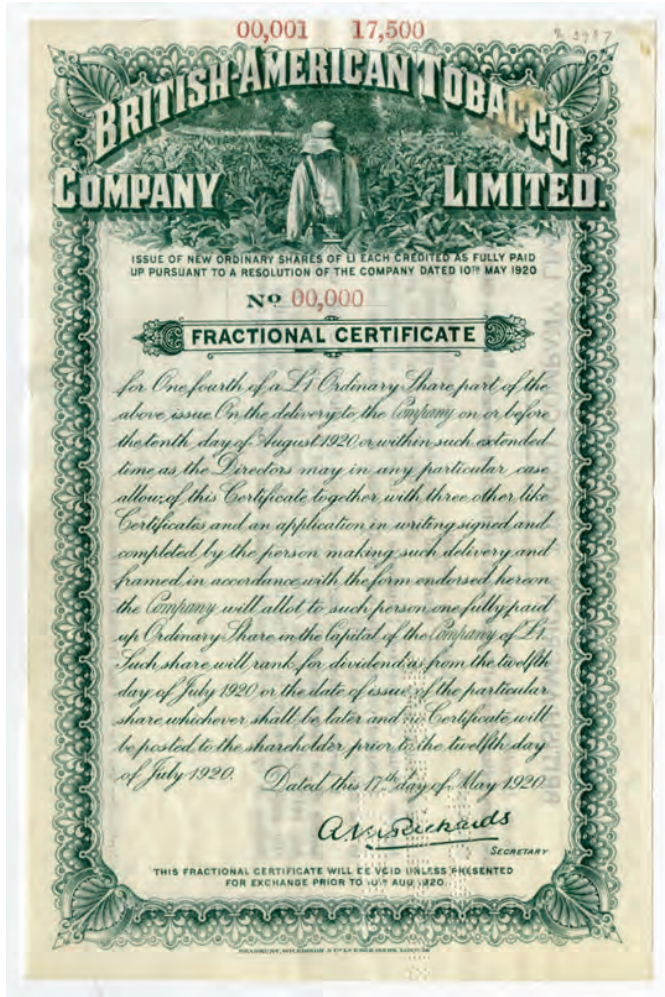 00,001 17,500
BRITISH-AMERICAN TOBACCO
COMPANY LIMITED.
ISSUE OF NEW ORDINARY SHARES OF £1 EACH CREDITED AS FULLY PAID
UP PURSUANT TO A RESOLUTION OF THE COMPANY DATED 10TH MAY 1920
No 00,000
FRACTIONAL CERTIFICATE
for One fourth of a £1 Ordinary Share part of the
above issue. On the delivery to the Company on or before
the tenth day of August 1920 or within such extended
time as the Directors may in any particular case
allow, of this Certificate together with three other like
Certificates and an application in writing signed and
completed by the person making such delivery and
framed in accordance with the form endorsed hereon
the Company will allot to such person one fully paid
up Ordinary Share in the Capital of the Company of £1.
Such share will rank for dividend as from the twelfth
day of July 1920 or the date of issue of the particular
share whichever shall be later and Certificate will
be posted to the shareholder prior to the twelfth day
of July 1920. Dated this 17th day of May 1920
Richards
SECRETARY
THIS FRACTIONAL CERTIFICATE WILL BE VOID UNLESS PRESENTED
FOR EXCHANGE PRIOR TO 10TH AUG 1920.